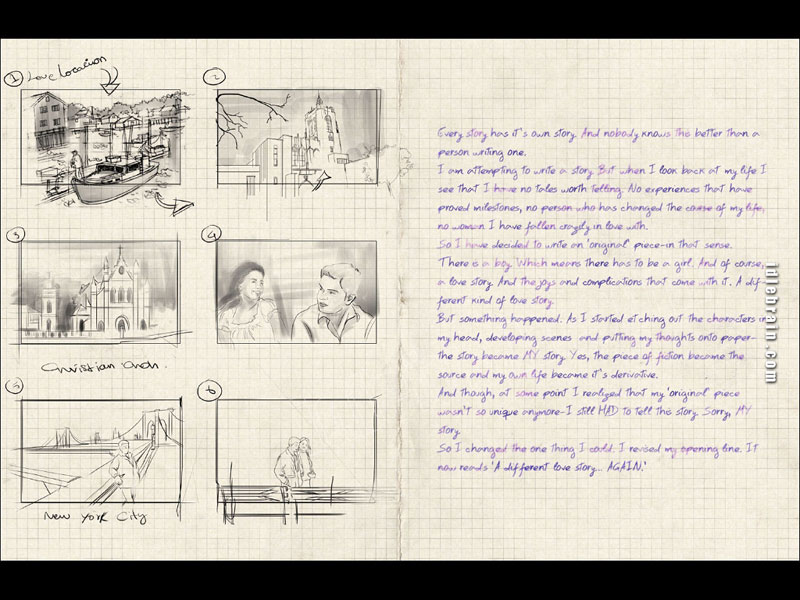 1 Love Location
2
3
4
Christian
5
6
New York City
Every story has it's own story. And nobody knows this better than a
person writing one.
I am attempting to write a story. But when I look back at my life I
see that I have no tales worth telling. No experiences that have
proved milestones, no person who has changed the course of my life,
no woman I have fallen crazily in love with.
So I have decided to write an 'original' piece-in that sense.
There is a boy. Which means there has to be a girl. And of course,
a love story. And the joys and complications that come with it. A dif
ferent kind of love story.
But something happened. As I started etching out the characters in
my head, developing scenes and putting my thoughts onto paper-
the story became MY story. Yes, the piece of fiction became the
source and my own life became it's derivative.
And though, at some point I realized that my 'original' piece
wasn't so unique anymore-I still HAD to tell this story. Sorry, MY
story.
So I changed the one thing I could. I revised my opening line. It
now reads 'A different love story... AGAIN.'
idlebrain.com